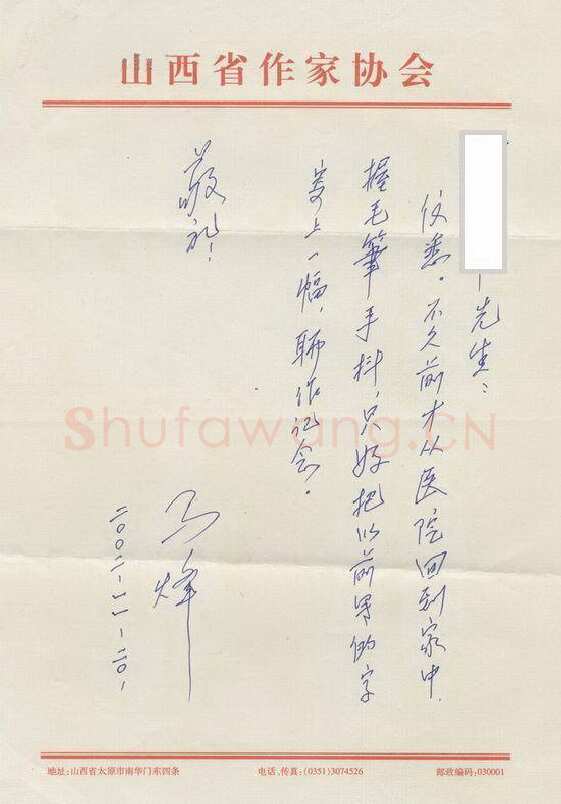 山西省作家协会
先生：
信悉。不久前才从医院回到家中，
握毛筆手抖，只好把以前写的字
寄上一幅，聊作记念。
敬礼！
马烽
二〇〇二·一一·二〇·
Shufawang.CN
地址:山西省太原市南华门东四条 电话、传真:(0351)3074526 邮政编码:030001